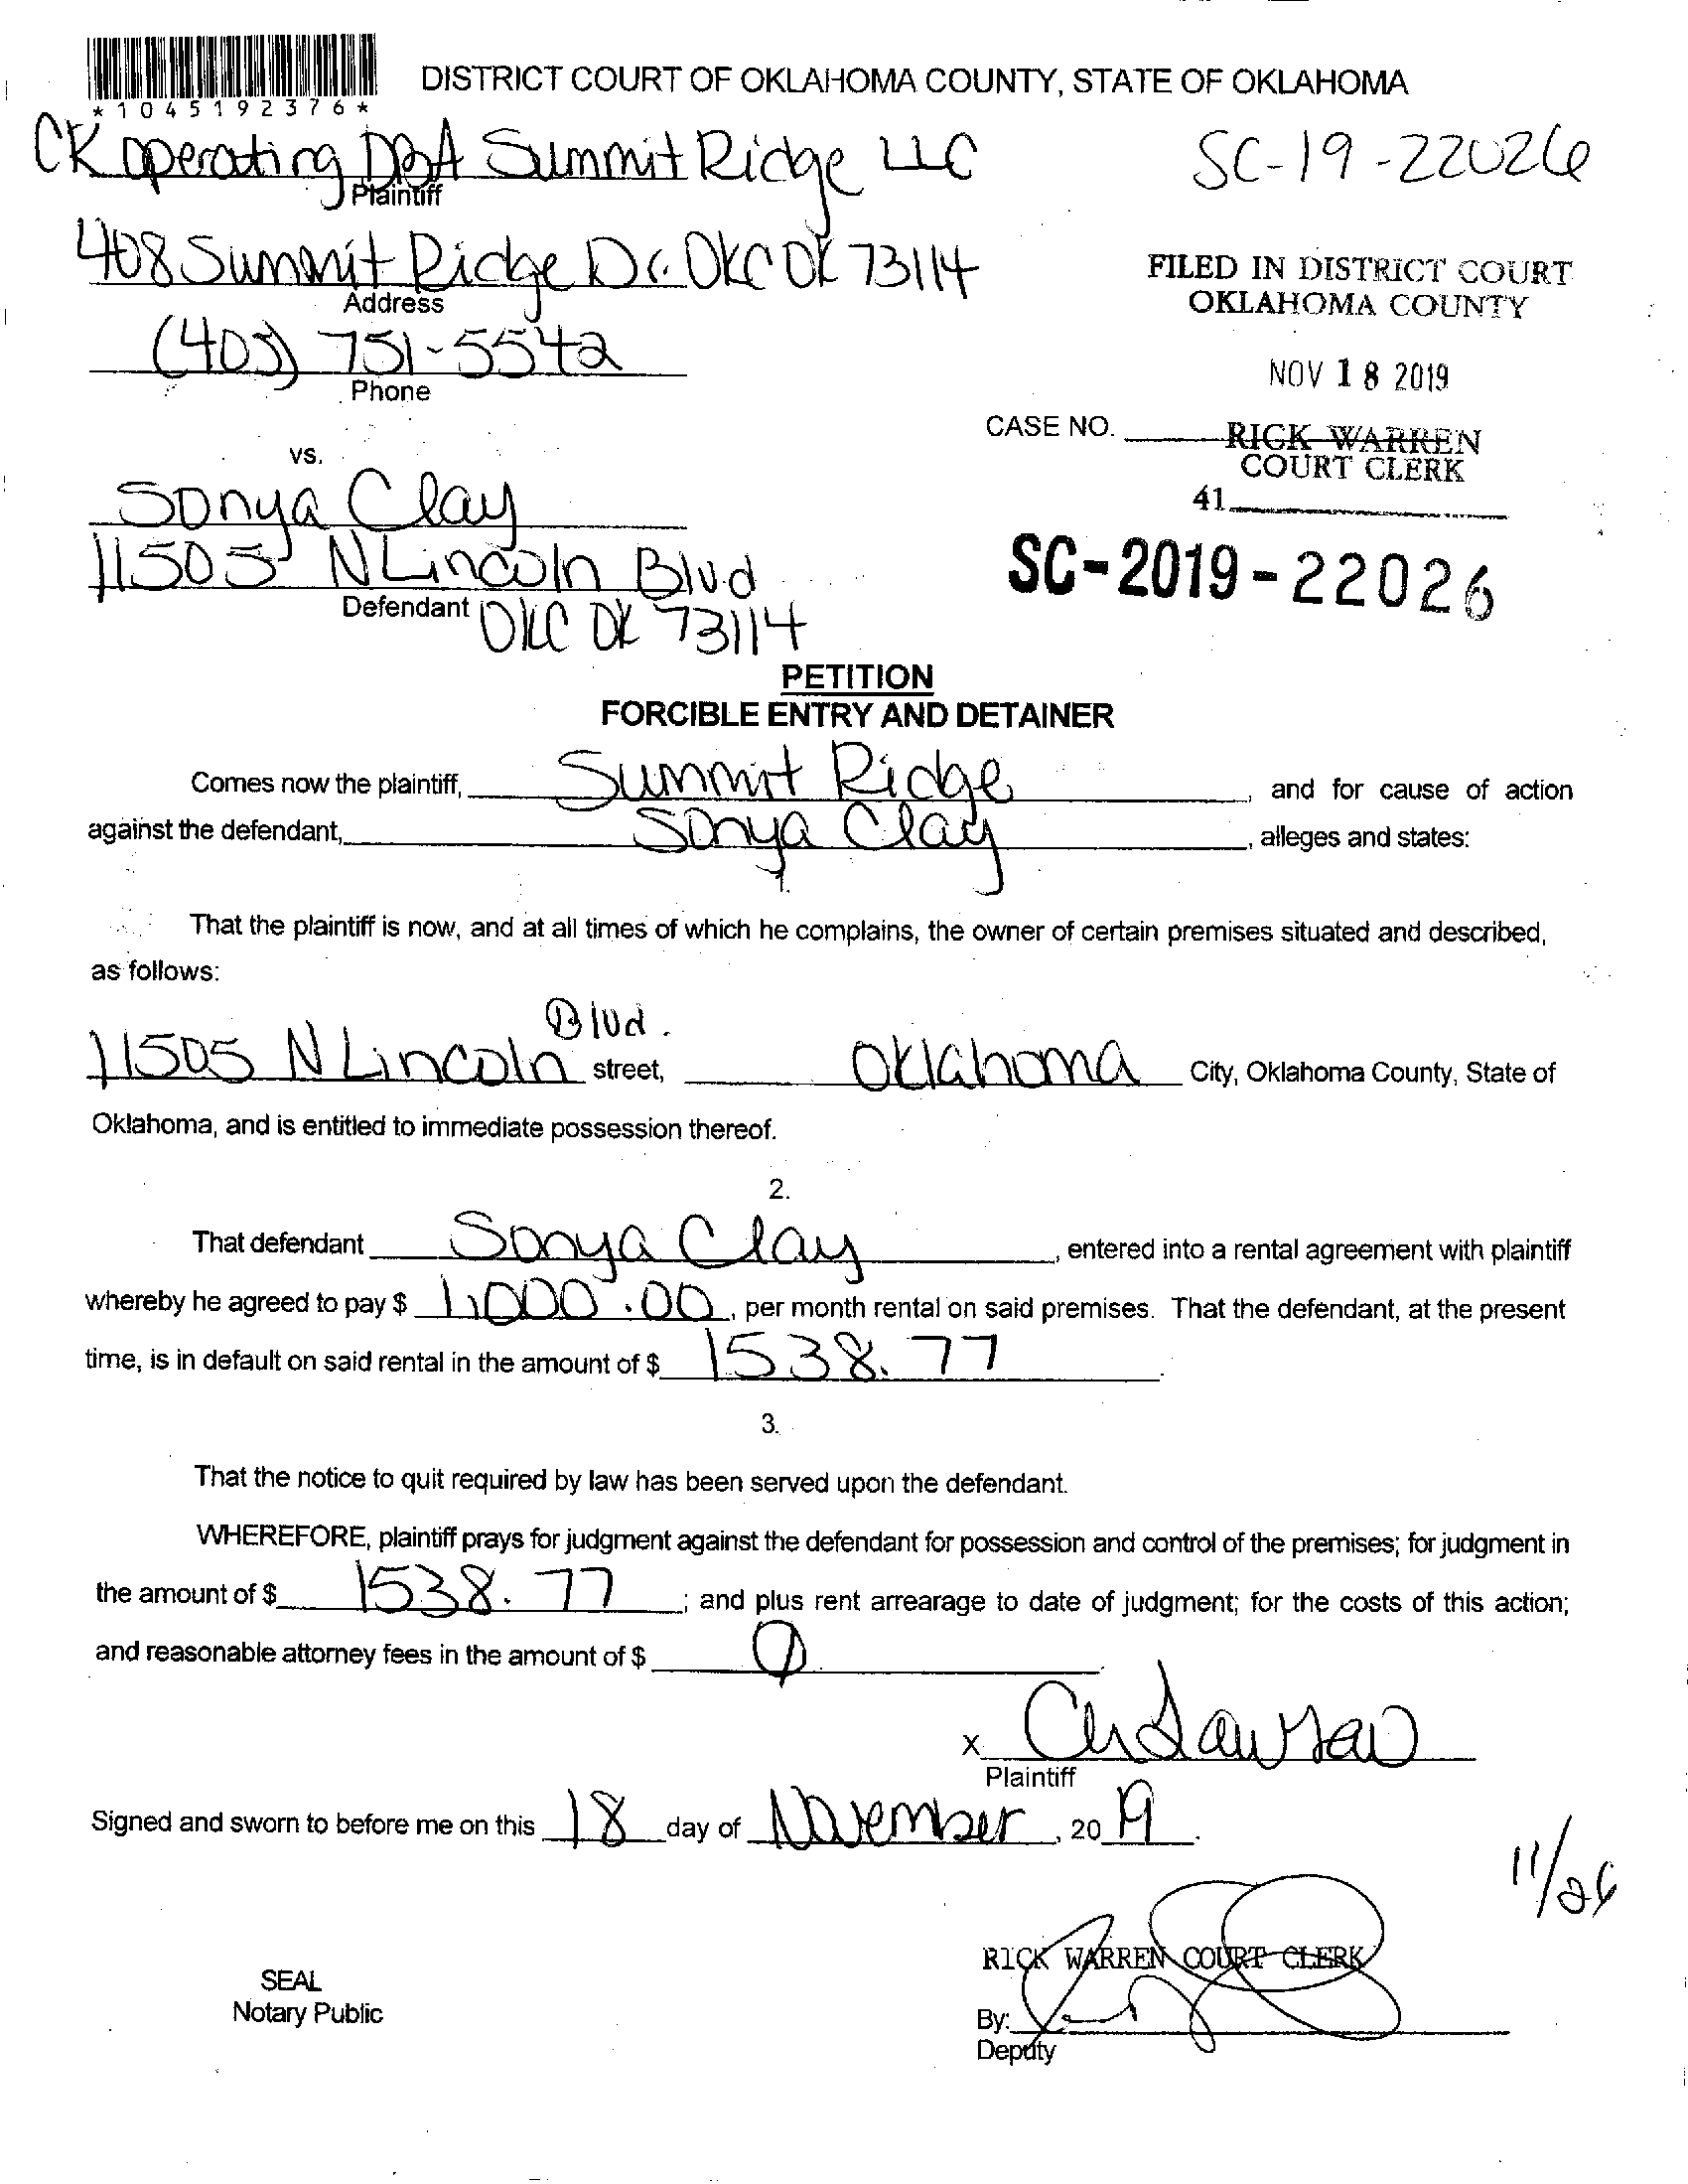 DISTRICT COURT OF OKLAHOMA COUNTY, STATE OF OKLAHOMA
*1045192376*
CK Operating DBA Summit Ridge LLC
SC-19-22026
Plaintiff
408 Summit Ridge Dr. OKC OK 73114
Address
FILED IN DISTRICT COURT
OKLAHOMA COUNTY
(405) 751-5542
Phone
NOV 18 2019
CASE NO.
RICK WARREN
COURT CLERK
41
vs.
Sonya Clay
11505 N Lincoln Blvd
Defendant OKC OK 73114
SC-2019-22026
PETITION
FORCIBLE ENTRY AND DETAINER
Comes now the plaintiff, Summit Ridge, and for cause of action
against the defendant, Sonya Clay, alleges and states:
1.
That the plaintiff is now, and at all times of which he complains, the owner of certain premises situated and described,
as follows:
Blvd.
11505 N Lincoln street, Oklahoma City, Oklahoma County, State of
Oklahoma, and is entitled to immediate possession thereof.
2.
That defendant Sonya Clay, entered into a rental agreement with plaintiff
whereby he agreed to pay $ 1,000.00, per month rental on said premises. That the defendant, at the present
time, is in default on said rental in the amount of $ 1538.77.
3.
That the notice to quit required by law has been served upon the defendant.
WHEREFORE, plaintiff prays for judgment against the defendant for possession and control of the premises; for judgment in
the amount of $ 1538.77; and plus rent arrearage to date of judgment; for the costs of this action;
and reasonable attorney fees in the amount of $ 0.
X
Plaintiff
Signed and sworn to before me on this 18 day of November, 2019.
11/26
RICK WARREN COURT CLERK
SEAL
Notary Public
By:
Deputy